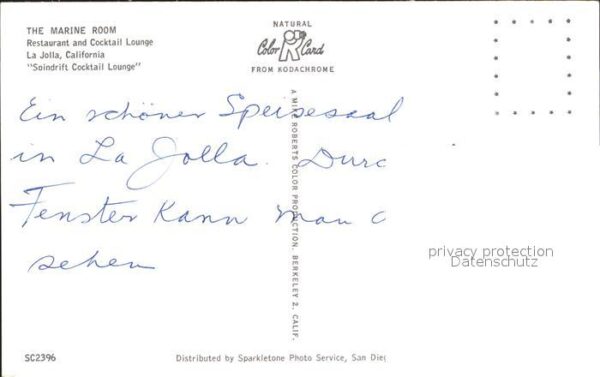 THE MARINE ROOM
Restaurant and Cocktail Lounge
La Jolla, California
"Spindrift Cocktail Lounge"
NATURAL
Color Card
FROM KODACHROME
A MIKE ROBERTS COLOR PRODUCTION, BERKELEY 2, CALIF.
Ein schöner Speisesaal
in La Jolla. Durc
Fenster Kann man
sehen
privacy protection
Datenschutz
SC2396
Distributed by Sparkletone Photo Service, San Die